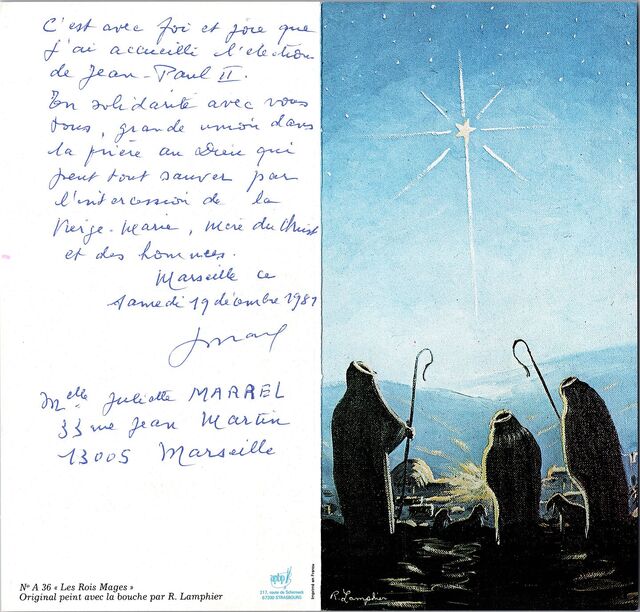 C'est avec foi et joie que
j'ai accueilli l'election
de Jean-Paul II.
En solidarité avec vous
tous, grande union dans
la prière au Dieu qui
peut tout sauver par
l'intercession de la
Vierge-Marie, Mère du Christ
et des hommes.
Marseille ce
samedi 19 décembre 1981
Melle Juliette MARREL
33 rue Jean Martin
13005 Marseille
N° A 36 « Les Rois Mages »
Original peint avec la bouche par R. Lamphier
apbp
217, route de Schirmeck
67200 STRASBOURG
Imprimé en France
R. Lamphier